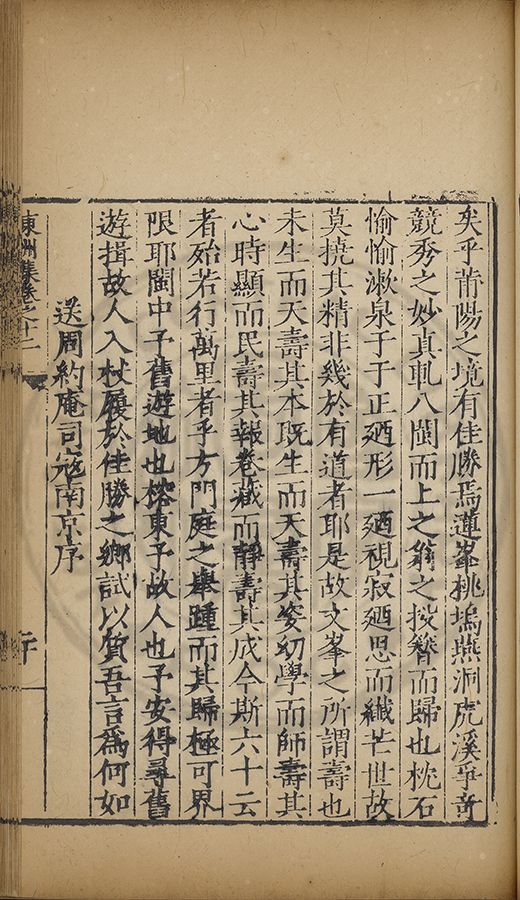 矣乎莆陽之境有佳勝焉蓮峯桃塢燕洞虎溪爭奇
競秀之妙真軋八閩而上之翁之投簪而歸也枕石
愉愉漱泉于于正廼形一廼視寂廼思而纖芒世故
莫撓其精非幾於有道者耶是故文峯之所謂壽也
未生而天壽其本既生而天壽其姿幼學而師壽其
心時顯而民壽其報卷藏而靜壽其成今斯六十云
者殆若行萬里者乎方門庭之舉踵而其歸極可界
限耶閩中予舊遊地也榕東予故人也予安得尋舊
遊揖故人入杖履於佳勝之鄉試以質吾言爲何如
送周約庵司寇南京序
東洲集卷之十二